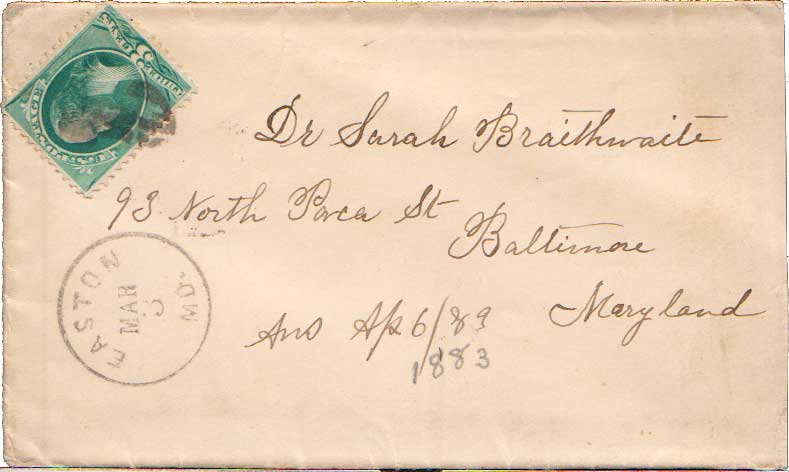 Dr Sarah Braithwaite
93 North Paca St
Baltimore
Maryland
EASTON MD.
MAR
Ans Ap 6/83
1883